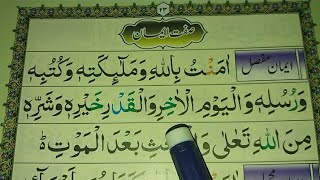 ۲۳
صفت ایمان
ایمان مفصل
اٰمَنْتُ بِاللهِ وَمَلٰٓئِكَتِهٖ وَكُتُبِهٖ
وَرُسُلِهٖ وَالْيَوْمِ الْاٰخِرِ وَالْقَدْرِ خَيْرِهٖ وَشَرِّهٖ
مِنَ اللهِ تَعَالٰى بَعْدَ الْمَوْتِ ط